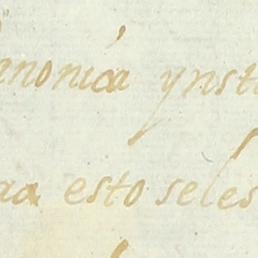 anonica ynst
aa esto seles